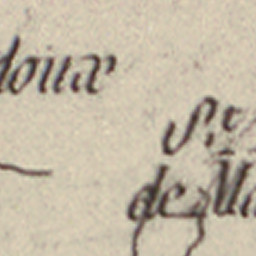 douæ
St.
de Ma